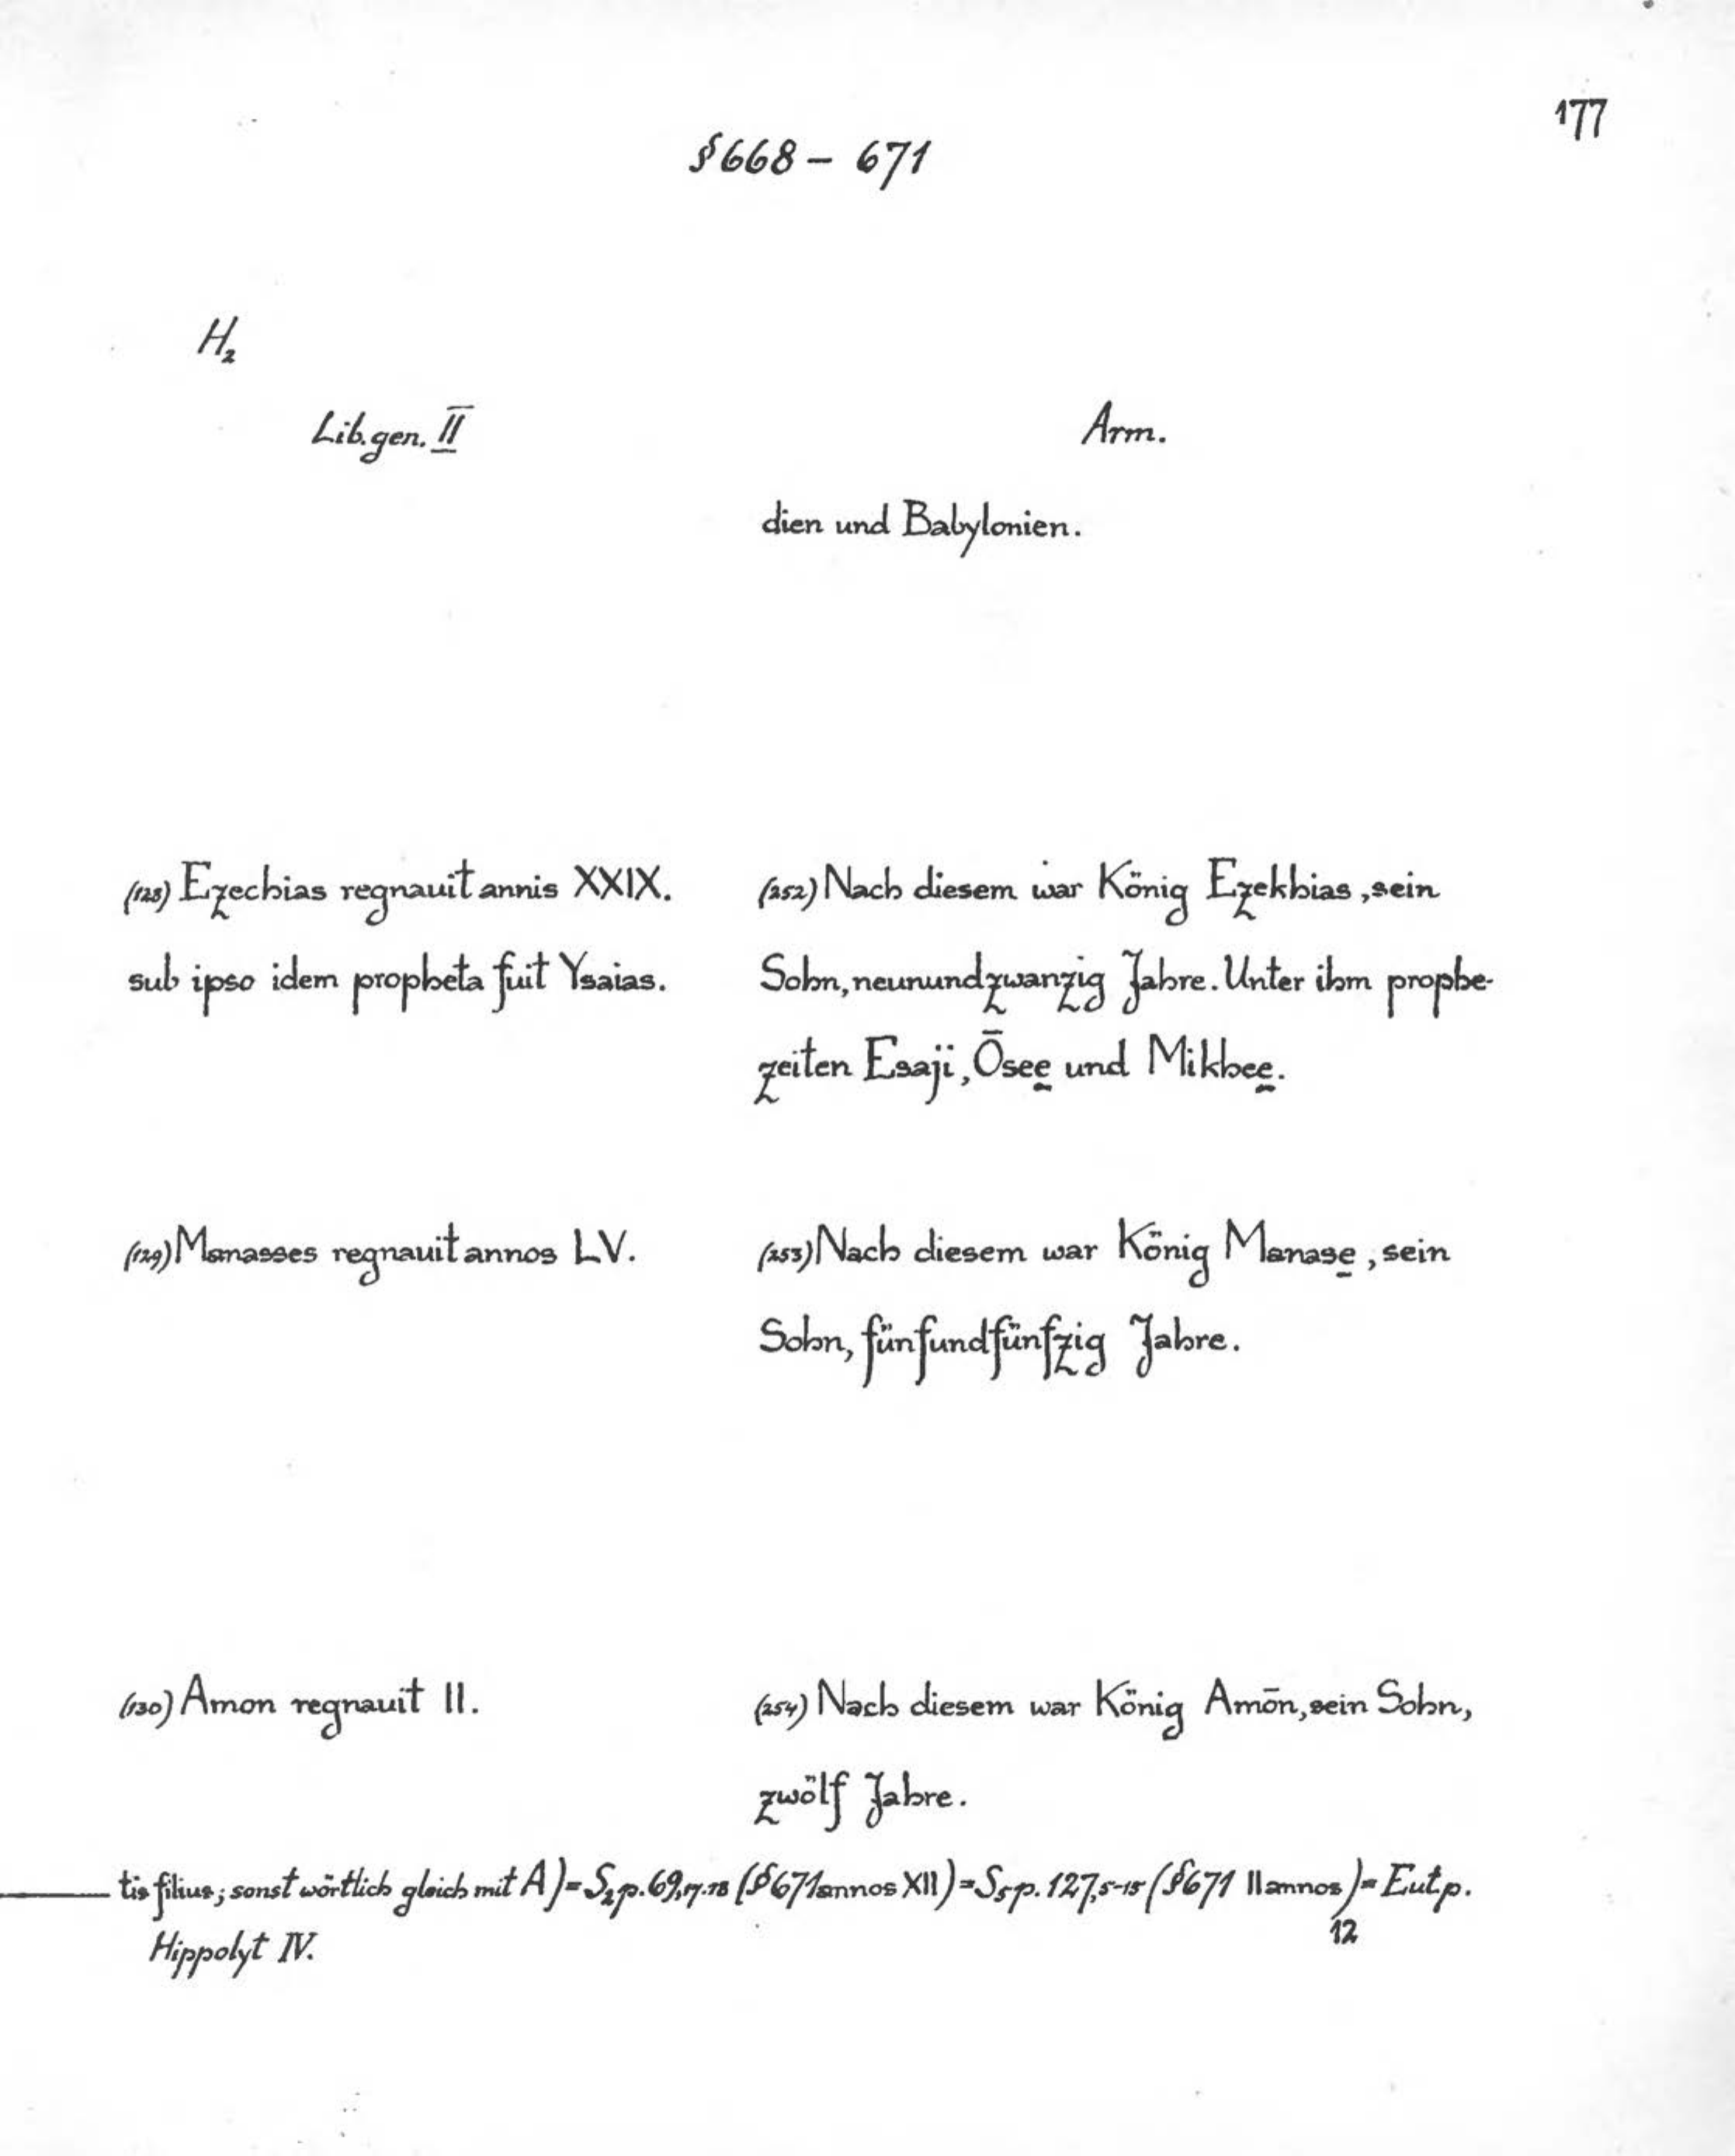 177
§ 668 – 671
H₂
Lib. gen. II
Arm.
dien und Babylonien.
(128) Ezechias regnauit annis XXIX.
sub ipso idem propheta fuit Ysaias.
(252) Nach diesem war König Ezekhias, sein
Sohn, neunundzwanzig Jahre. Unter ihm prophe-
zeiten Esaji, Ōsee̱ und Mikhee̱.
(129) Manasses regnauit annos LV.
(253) Nach diesem war König Manase̱, sein
Sohn, fünfundfünfzig Jahre.
(130) Amon regnauit II.
(254) Nach diesem war König Amōn, sein Sohn,
zwölf Jahre.
tis filius; sonst wörtlich gleich mit A) = S₂ p. 69,17.18 (§ 671 annos XII) = S₅ p. 127,5-15 (§ 671 II annos) = Eut. p.
Hippolyt IV.
12